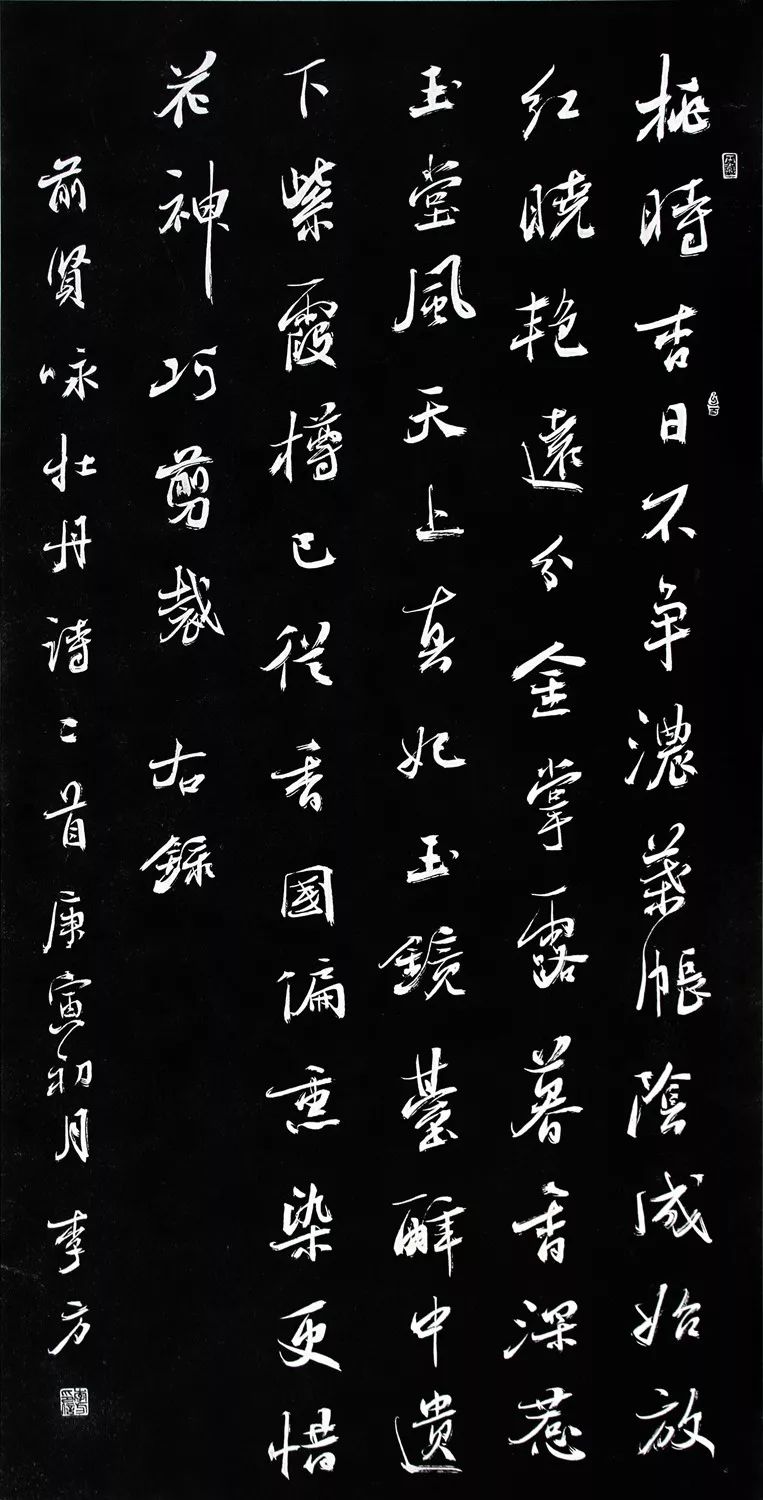 桃時杏日不争濃葉帳陰成始放
紅曉艳遠分金掌露暮香深惹
玉堂風天上真妃玉鏡臺醉中遺
下紫霞樽已從香國偏熏染更惜
花神巧剪裁 右録
前賢咏牡丹詩二首庚寅初月李方